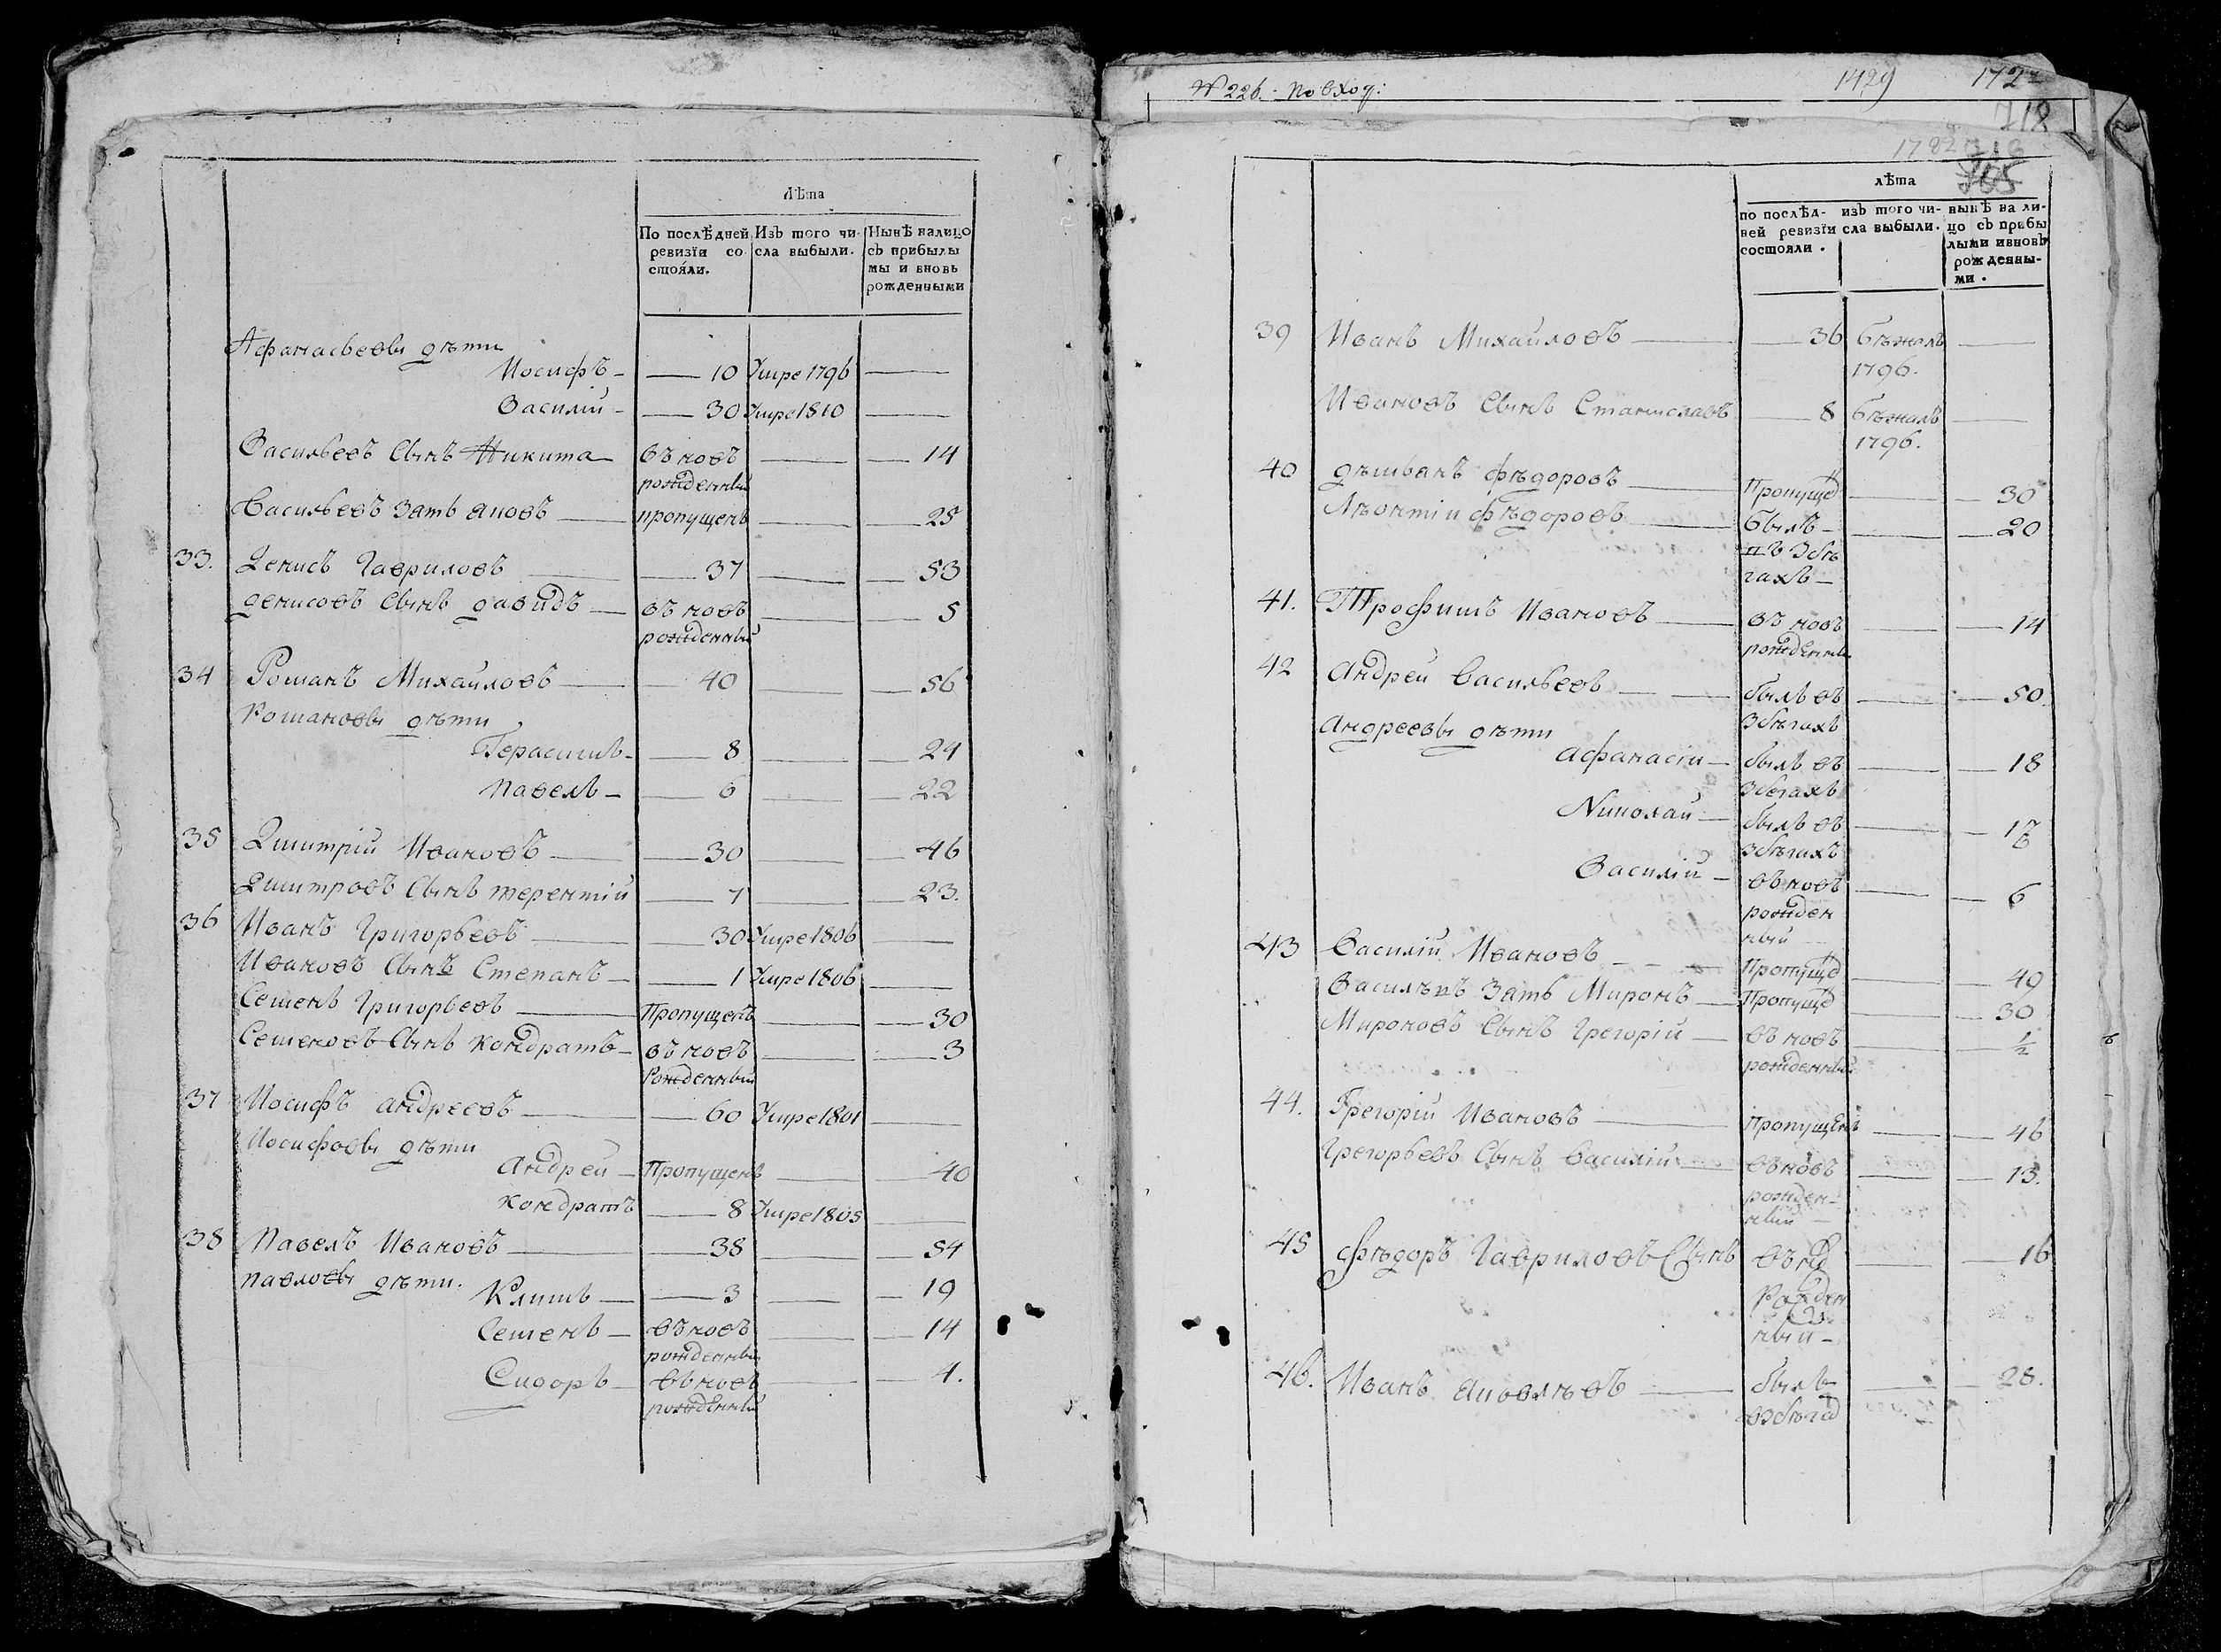 Лѣта
По послѣдней ревизїи состояли.
Изъ того числа выбыли.
Нынѣ налицо съ прибылымы и вновь рожденными
Афанасьевы дѣти
Иосифъ — 10 Умре 1796 —
Василій — 30 Умре 1810 —
Васильевъ Сынъ Никита въновъ рожденный — 14
Васильевъ Зять пропущенъ — 25
33. Денисъ Гавриловъ — 37 — 53
Денисовъ Сынъ давидъ — въновъ рожденный — 5
34 Романъ Михайловъ — 40 — 56
Романовы дѣти
Герасимъ — 8 — 24
Павелъ — 6 — 22
35 Дмитрій Ивановъ — 30 — 46
Дмитровъ Сынъ терентій — 7 — 23.
36 Иванъ Григорьевъ — 30 Умре 1806 —
Ивановъ Сынъ Степанъ — 1 Умре 1806 —
Семенъ Григорьевъ — Пропущенъ — 30
Семеновъ Сынъ Кондратъ — въновъ Рожденный — 3
37 Иосифъ андреевъ — 60 Умре 1801 —
Иосифовы дѣти
андрей — Пропущенъ — 40
Кондратъ — 8 Умре 1805 —
38 Павелъ Ивановъ — 38 — 54
павловы дѣти.
Климъ — 3 — 19
Семенъ — въновъ рожденный — 14
Сидоръ — въновъ рожденный — 1.
№ 226. - по вход:
1429
718
лѣта
по послѣдней ревизїи состояли.
изъ того числа выбыли.
нынѣ на лицо съ прибылыми ивновъ рожденными.
39 Иванъ Михайловъ — 36 бѣжалъ 1796. —
Ивановъ Сынъ Станиславъ — 8 бѣжалъ 1796. —
40 фѣдоровъ — Пропущен — 30
Лѣонтіи фѣдоровъ — былъ въ збѣгахъ — 20
41. Трофимъ Ивановъ — въновъ рожденны — 14
42 андрей Васильевъ — былъ въ збѣгахъ — 50.
андреевы дѣти
афанасіи — былъ въ збегахъ — 18
Николай — былъ въ збѣгахъ — 17
Василій — въновъ рожденный — 6
43 Василій Ивановъ — Пропущен — 49
Зять Миронъ — Пропущен — 30
Мироновъ Сынъ Грегорій — въновъ рожденный — 1/2
44. Грегорій Ивановъ — пропущенъ — 46
Грегорьевъ Сынъ Василій — въновъ рожденный — 13.
45 Фѣдоръ Гавриловъ Сынъ въно Рожденный — 16
46. Иванъ — былъ взбѣга — 28.